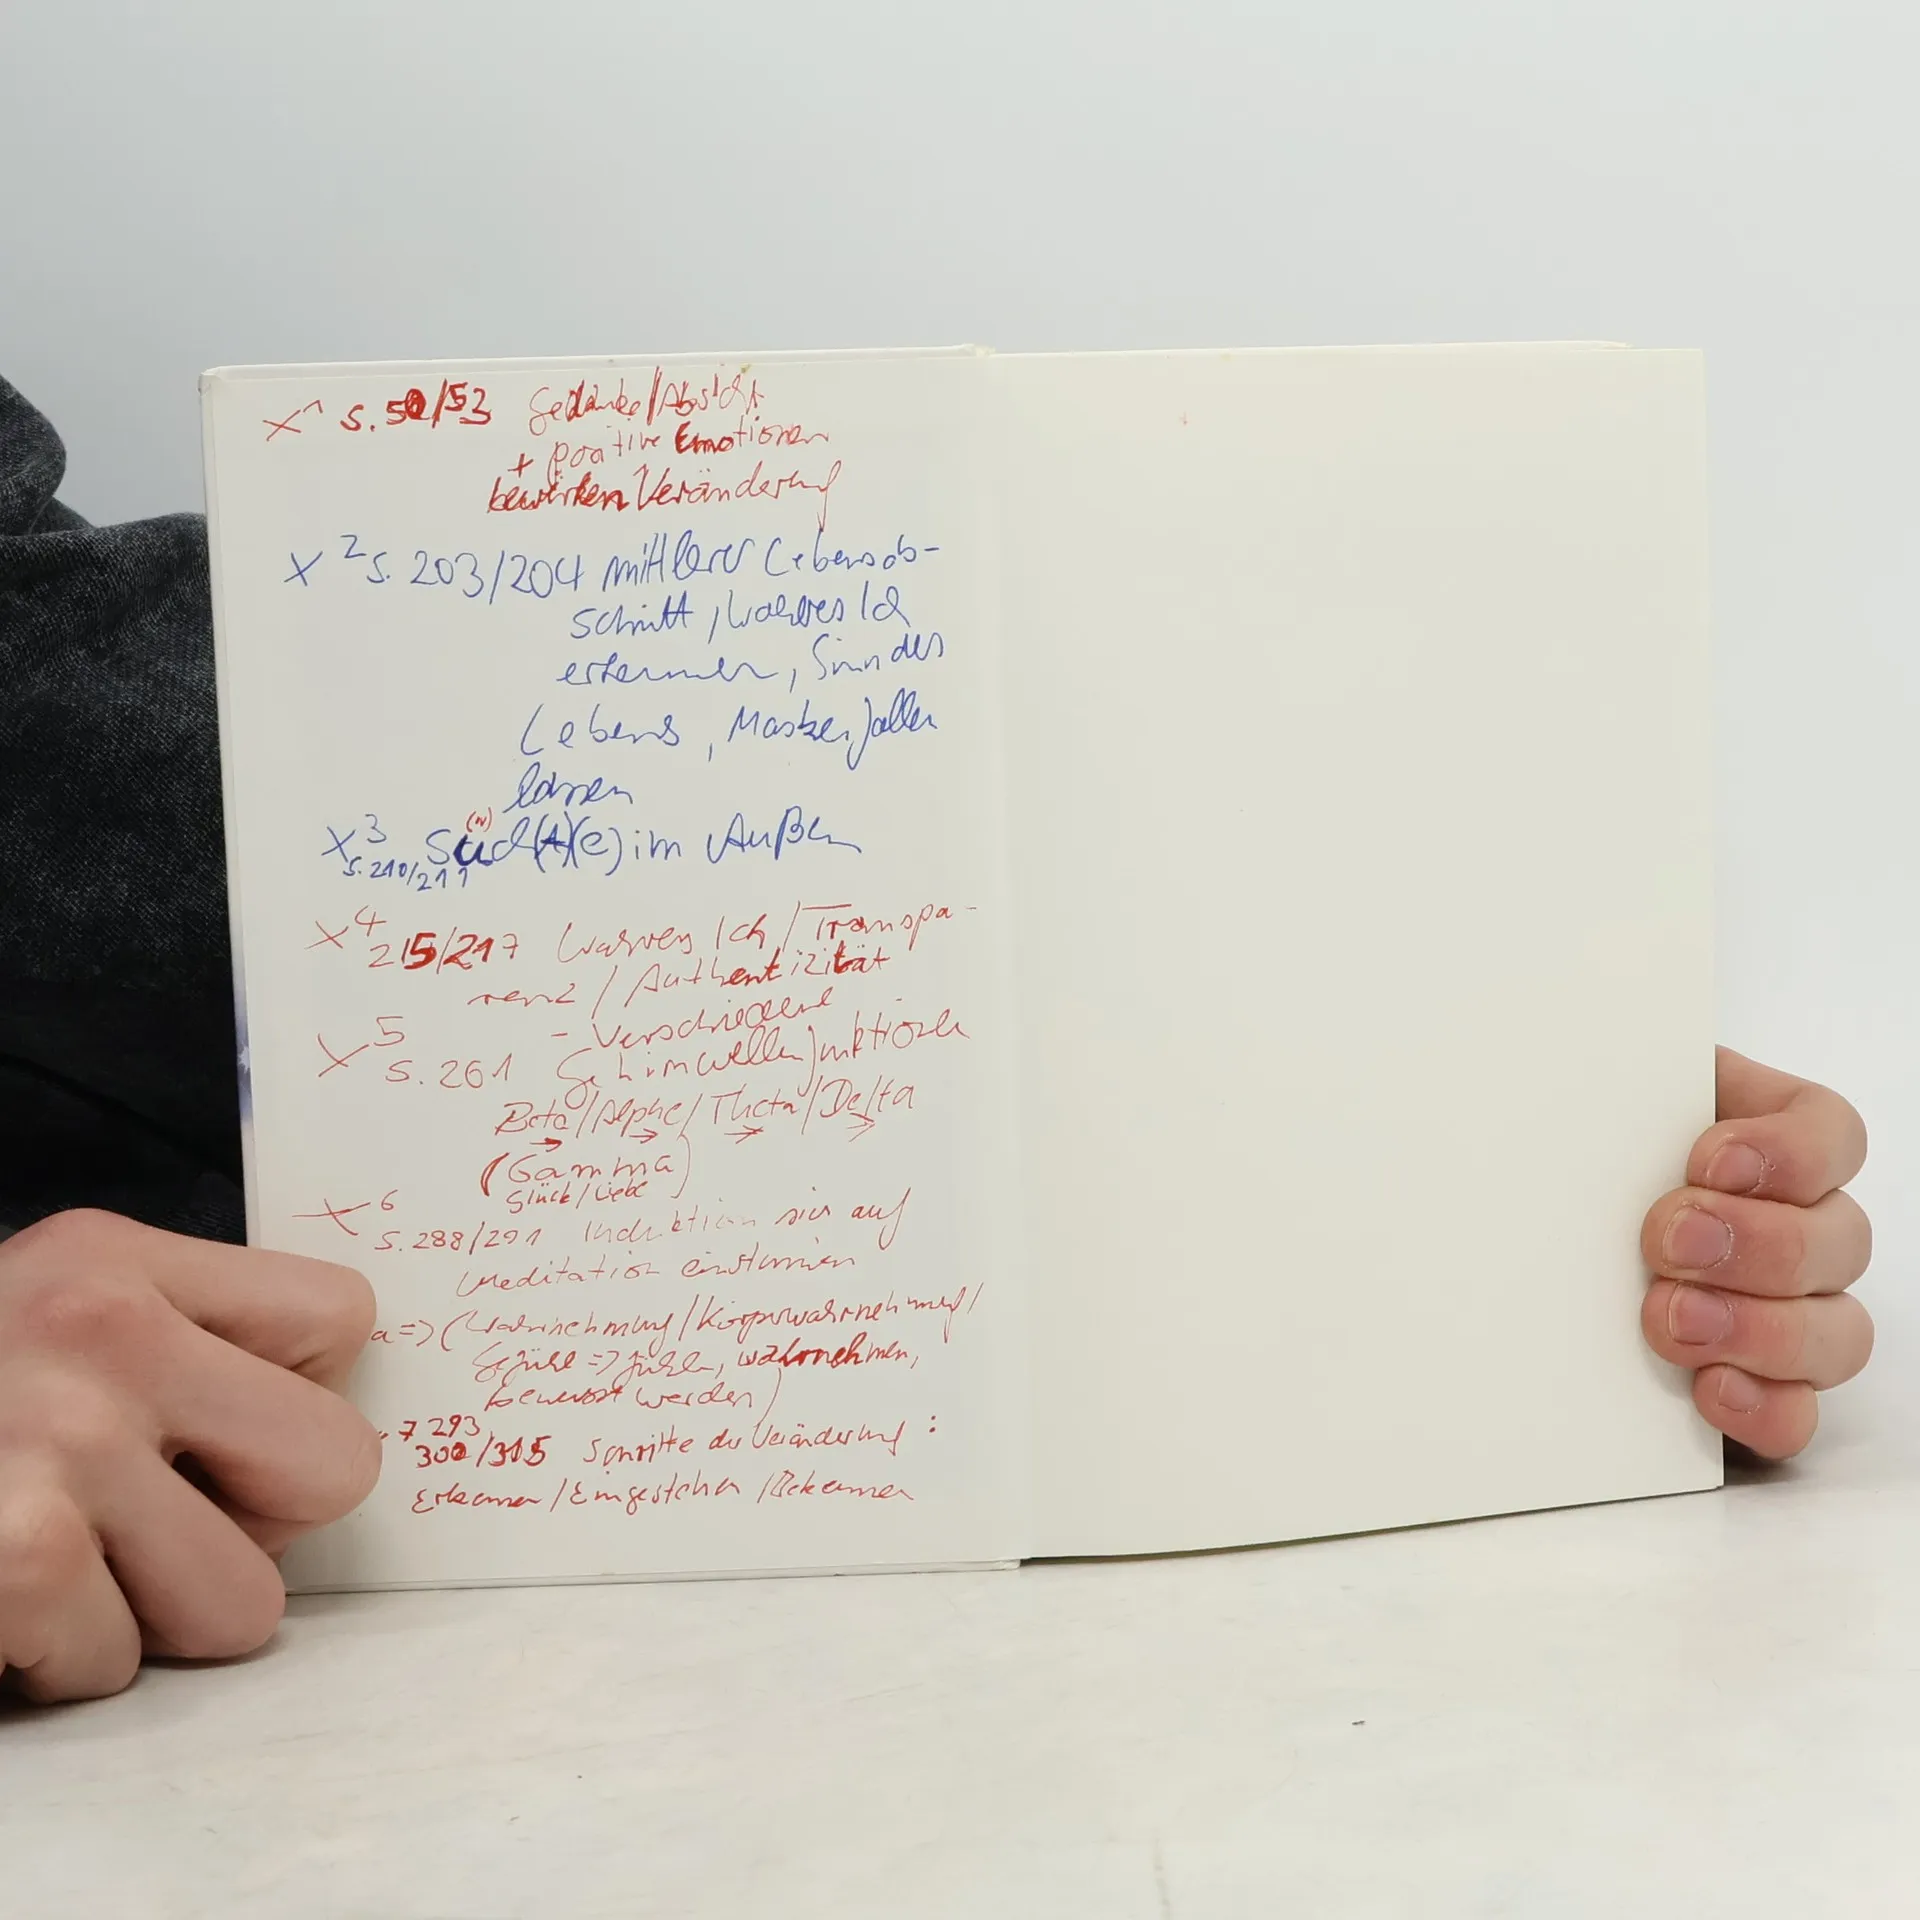 X¹ S. 52/53 Gedanke/Absicht
+ positive Emotionen
bewirken Veränderung
X² S. 203/204 mittlerer Lebensab-
schnitt, wahres Ich
erkennen, Sinn des
Lebens, Masken fallen
lassen
X³ Such(t)(e) im Außen
S. 210/211
X⁴ 215/217 Wahres Ich/Transpa-
renz/Authentizität
- Verschiedene
X⁵ S. 261 Gehirnwellenfunktionen
Beta/Alpha/Theta/Delta
(Gamma)
Glück/Liebe
X⁶ S. 288/291 Induktion sich auf
Meditation einstimmen
a => (Wahrnehmung/Körperwahrnehmung/
Gefühl => fühlen, wahrnehmen,
bewusst werden)
7 293
300/315 Schritte der Veränderung:
Erkennen/Eingestehen/Bekennen